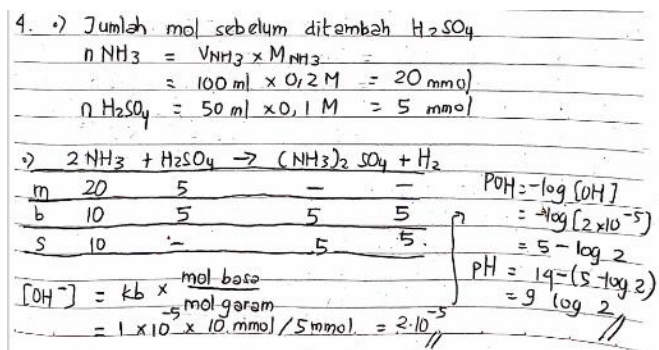 4. •) Jumlah mol sebelum ditambah H2SO4
n NH3 = VNH3 x MNH3 =
= 100 ml x 0,2 M = 20 mmol
n H2SO4 = 50 ml x0,1 M = 5 mmol
•) 2 NH3 + H2SO4 → (NH3)2 SO4 + H2
m 20 5 - -
b 10 5 5 5
s 10 - 5 5.
[OH-] = kb x mol basa / mol garam
= 1 x 10^-5 x 10 mmol / 5 mmol = 2.10^-5 //
POH = -log [OH]
= -log [2x10^-5]
= 5 - log 2
pH = 14-(5-log 2)
= 9 log 2 //